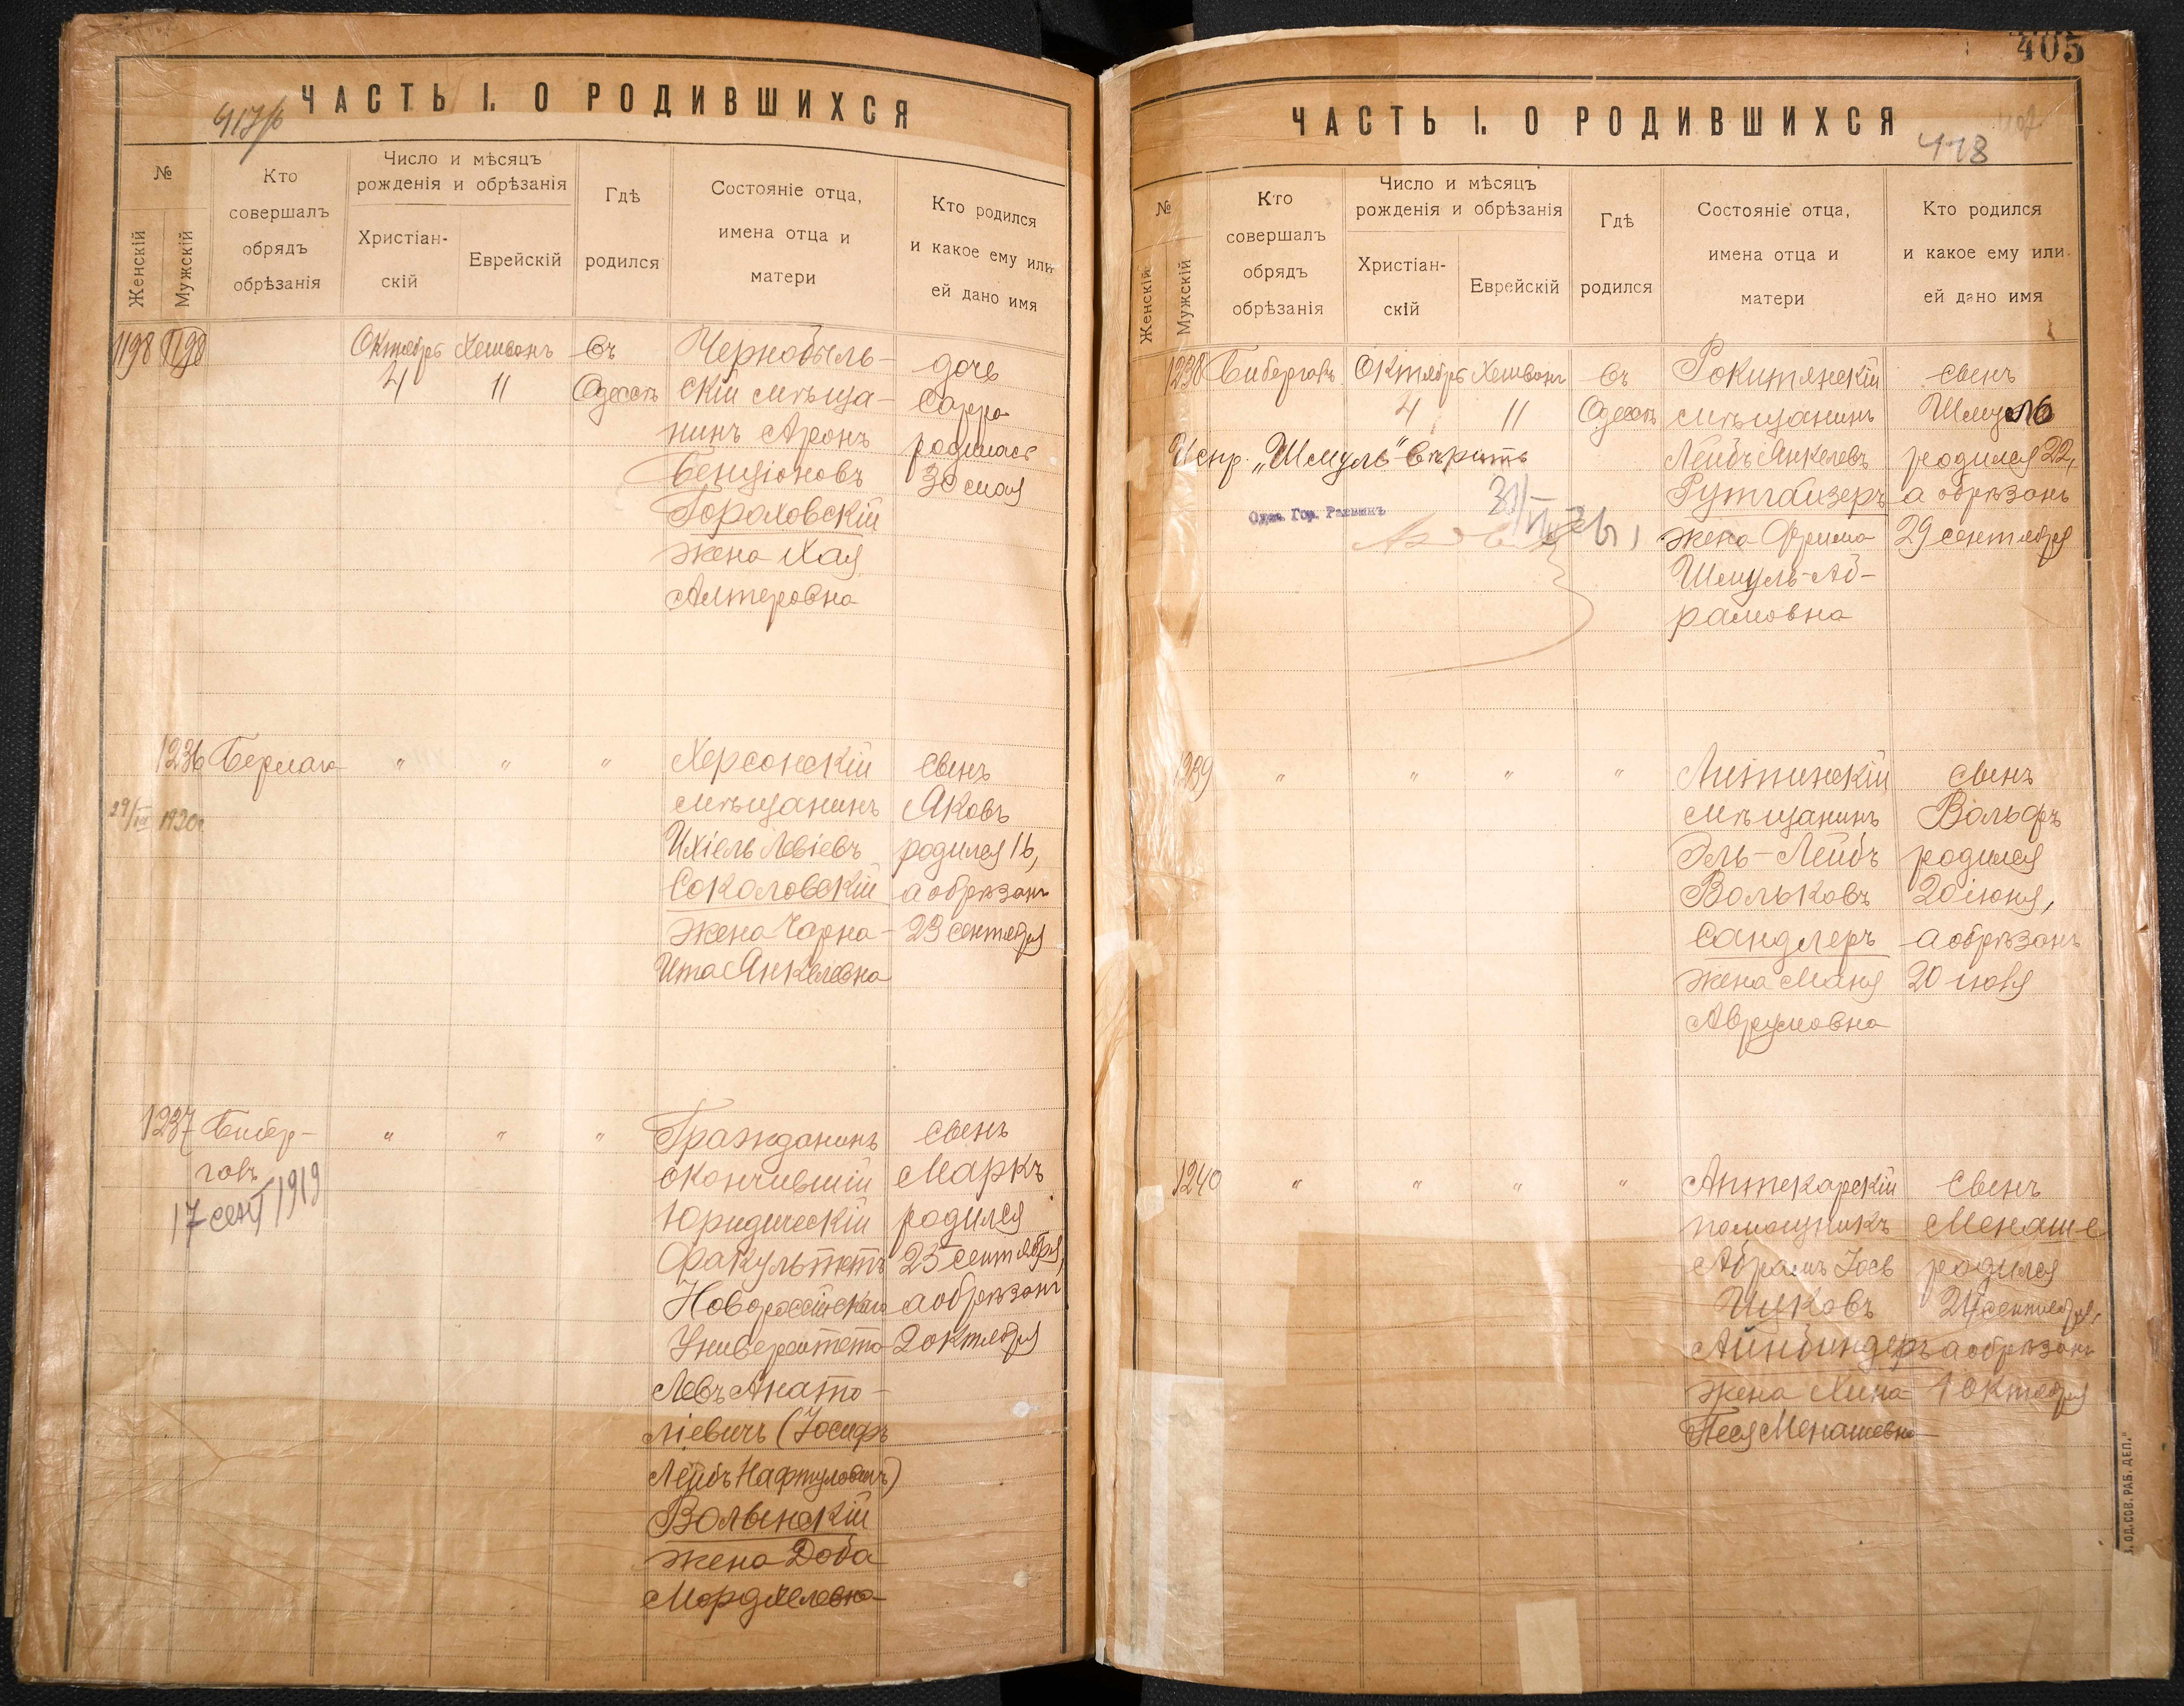 ЧАСТЬ I. О РОДИВШИХСЯ
№
Женскій
Мужскій
Кто
совершалъ
обрядъ
обрѣзанія
Число и мѣсяцъ
рожденія и обрѣзанія
Христіан-
скій
Еврейскій
Гдѣ
родился
Состояніе отца,
имена отца и
матери
Кто родился
и какое ему или
ей дано имя
1198 1198
Октябрь Хешвонъ
4 11
въ
Одессѣ
Чернобыль-
скій мѣща-
нинъ Аронъ
Бенціоновъ
Гороховскій
жена Хая
Алтеровна
дочь
Сарра
родилась
30 мая
1236 Берман
" " "
1920г.
Херсонскій
мѣщанинъ
Ихіель Левіевъ
Соколовскій
жена Чарна-
Ита Янкелевна
сынъ
Яковъ
родился 16,
а обрѣзанъ
23 сентября
1237 Бибер-
говъ
17 сент 1919
" " "
Гражданинъ
окончившій
Юридическій
Факультетъ
Новороссійскаго
Университета
Левъ Анато-
ліевичъ (Іосифъ
Лейбъ Нафтуловичъ)
Волынскій
жена Доба
Мордхелевна
сынъ
Маркъ
родился
25 сентября,
а обрѣзанъ
2 октября
405
ЧАСТЬ I. О РОДИВШИХСЯ
418
№
Женскій
Мужскій
Кто
совершалъ
обрядъ
обрѣзанія
Число и мѣсяцъ
рожденія и обрѣзанія
Христіан-
скій
Еврейскій
Гдѣ
родился
Состояніе отца,
имена отца и
матери
Кто родился
и какое ему или
ей дано имя
1238 Биберговъ
Октябрь Хешвонъ
4 11
въ
Одессѣ
Испр. „Шмуль" вѣрить
Одес. Гор. Раввинъ
Рокитянскій
мѣщанинъ
Лейбъ Янкелевъ
Рутгайзеръ
жена Фрима
Шмуль-Аб-
рамовна
сынъ
Шмуль
родился 22,
а обрѣзанъ
29 сентября
1239 " " " "
Литинскій
мѣщанинъ
Эль-Лейбъ
Вольковъ
Сандлеръ
жена Маня
Аврумовна
сынъ
Вольфъ
родился
20 іюня,
а обрѣзанъ
20 іюля
1240 " " " "
Аптекарскій
помощникъ
Абрамъ Іосв
Ицковъ
Айнбиндеръ
жена Хина
Песя Менашевна
сынъ
Менаше
родился
24 сентября,
а обрѣзанъ
1 октября
ОД. СОВ. РАБ. ДЕП."